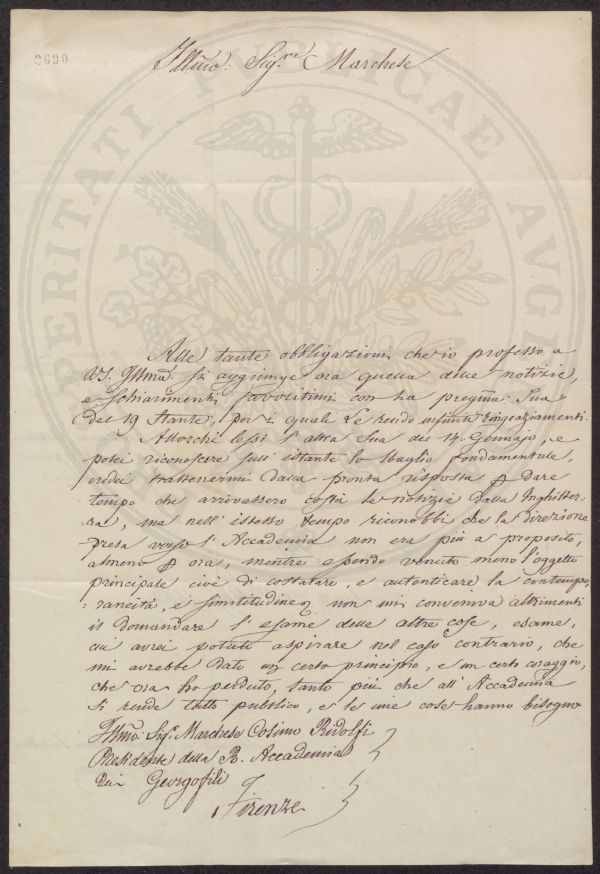 2690
Illmo: Sigre Marchese
Alle tante obbligazioni che io professo a
VS. Illma si aggiunge ora quella delle notizie,
e schiarimenti favoritimi con la pregma Sua
del 19 stante, per i quali Le rendo infiniti ringraziamenti.
Allorchè lessi l'altra Sua del 14. Gennajo, e
potei riconoscere sull'istante lo sbaglio fondamentale,
credei trattenermi dalla pronta risposta p dare
tempo che arrivassero costà le notizie dalla Inghilter-
ra, ma nell'istesso tempo riconobbi che la direzione
presa verso l'Accademia non era più a proposito,
almeno p ora, mentre essendo venuto meno l'oggetto
principale cioè di costatare, e autenticare la contempo
:raneità, e similitudine non mi conveniva altrimenti
il domandare l'esame delle altre cose, esame,
cui avrei potuto aspirare nel caso contrario, che
mi avrebbe dato un certo principio, e un certo coraggio,
che ora ho perduto, tanto più che all'Accademia
si rende tutto pubblico, e le mie cose hanno bisogno
Illmo: Sigr. Marchese Cosimo Ridolfi
Presidente della R. Accademia
dei Georgofili
Firenze
PROSPERITATI PUBLICAE AUGE